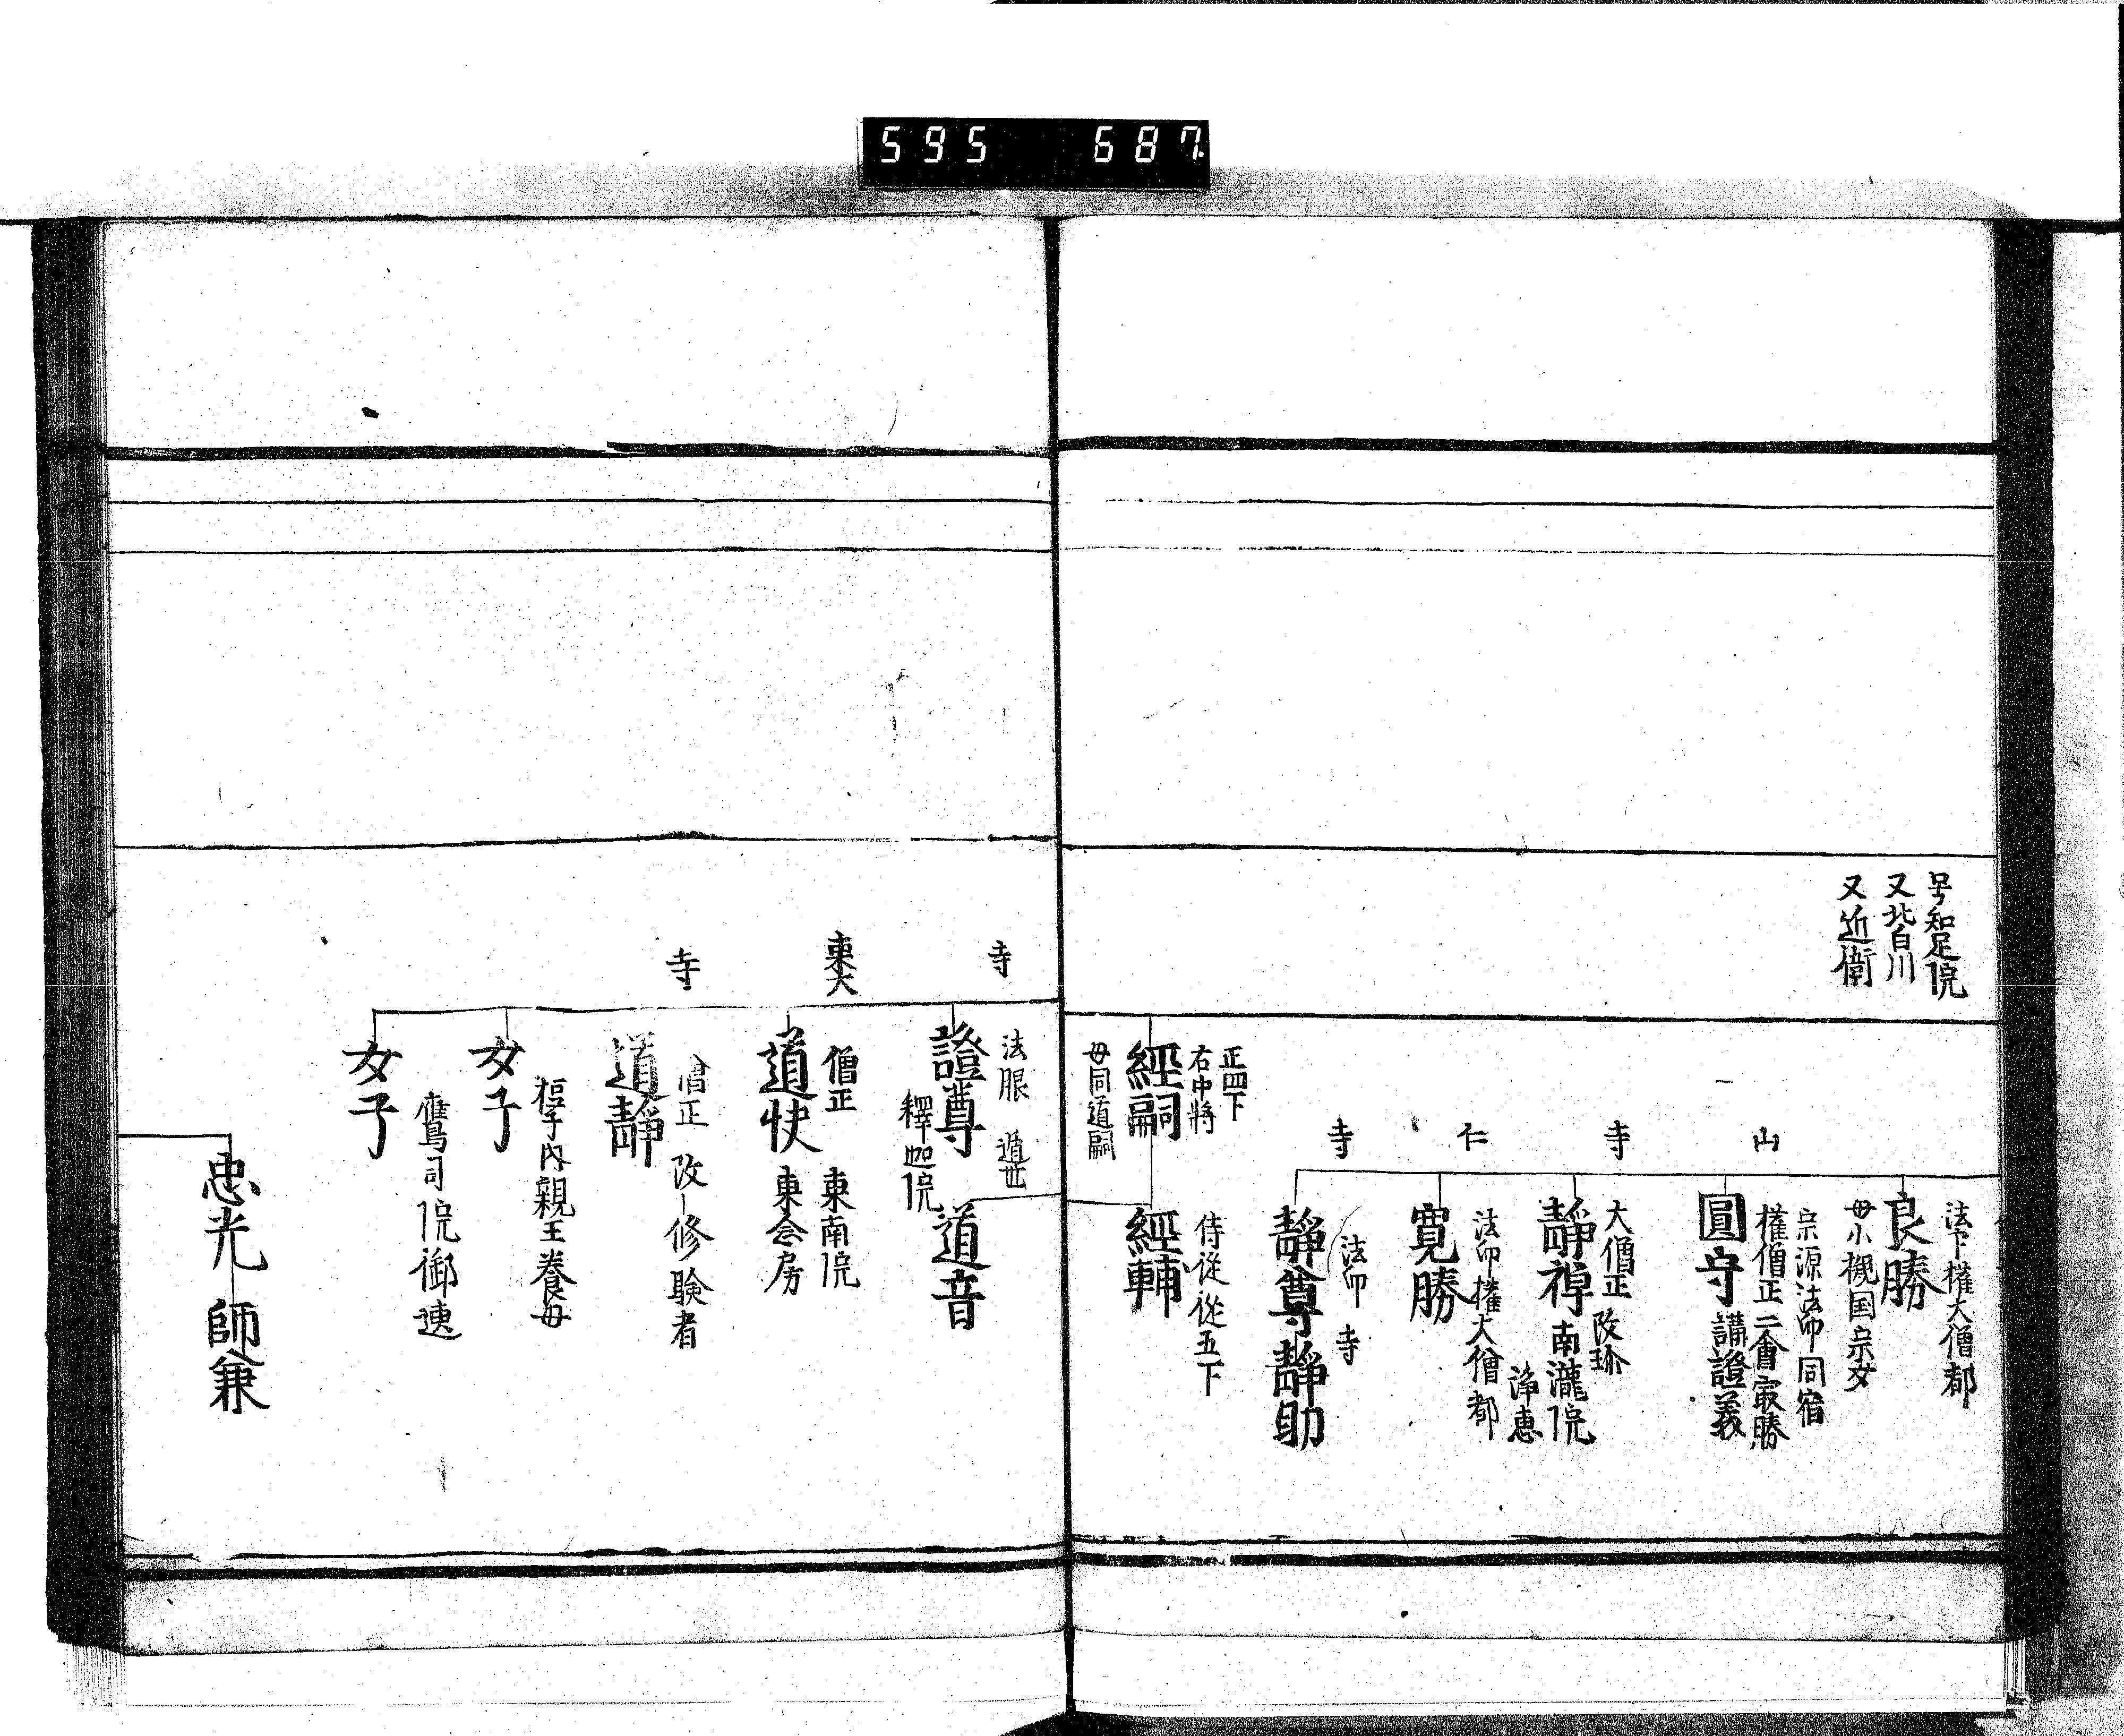 595 687.
号知足院
又北白川
又近衛
法下権大僧都
良勝
母小槻国宗女
山
宗源法印同宿
権僧正二會㝡勝
圓守 講證義
寺
大僧正 改珍
静禅 南瀧院
浄恵
仁
法印権大僧都
寛勝
寺
法印 寺
静尊 静助
正四下
右中將
經嗣
母同道嗣
侍従従五下
經輔
寺
法眼 遁世
證尊
釋迦院
道音
東大
僧正 東南院
道快 東金房
寺
僧正 改 修験者
道静
内親王養母
女子
鷹司院御連
女子
忠光 師兼